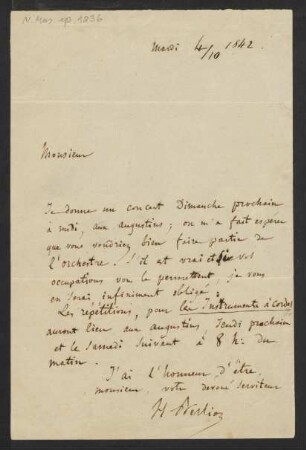 N. Mus. ep. 1836
Mardi 4/10 1842.
Monsieur
Je donne un concert Dimanche prochain
à midi, aux augustins ; on m'a fait espérer
que vous voudriez bien faire partie de
l'orchestre. S'il est vrai et si vos
occupations vous le permettent je vous
en serai infiniment obligé.
Les répétitions, pour les Instruments à Cordes
auront lieu aux augustins, Jeudi prochain
et le Samedi suivant à 8 h. du
matin.
J'ai l'honneur d'être,
monsieur, votre dévoué serviteur
H Berlioz